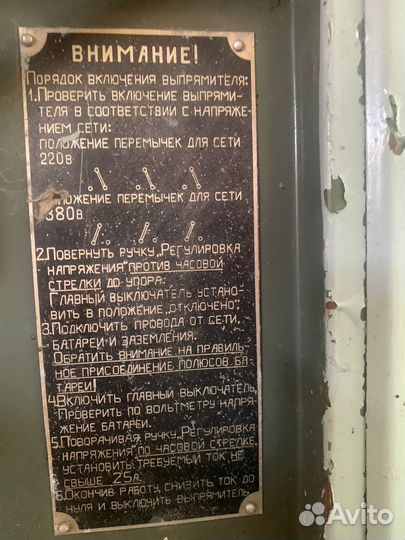 ВНИМАНИЕ!
ПОРЯДОК ВКЛЮЧЕНИЯ ВЫПРЯМИТЕЛЯ:
1.ПРОВЕРИТЬ ВКЛЮЧЕНИЕ ВЫПРЯМИ-
ТЕЛЯ В СООТВЕТСТВИИ С НАПРЯЖЕ-
НИЕМ СЕТИ:
ПОЛОЖЕНИЕ ПЕРЕМЫЧЕК ДЛЯ СЕТИ
220В
ПОЛОЖЕНИЕ ПЕРЕМЫЧЕК ДЛЯ СЕТИ
380В
2.ПОВЕРНУТЬ РУЧКУ „РЕГУЛИРОВКА
НАПРЯЖЕНИЯ" ПРОТИВ ЧАСОВОЙ
СТРЕЛКИ ДО УПОРА.
ГЛАВНЫЙ ВЫКЛЮЧАТЕЛЬ УСТАНО-
ВИТЬ В ПОЛОЖЕНИЕ „ОТКЛЮЧЕНО".
3.ПОДКЛЮЧИТЬ ПРОВОДА ОТ СЕТИ,
БАТАРЕИ И ЗАЗЕМЛЕНИЯ.
ОБРАТИТЬ ВНИМАНИЕ НА ПРАВИЛЬ-
НОЕ ПРИСОЕДИНЕНИЕ ПОЛЮСОВ БА-
ТАРЕИ!
4.ВКЛЮЧИТЬ ГЛАВНЫЙ ВЫКЛЮЧАТЕЛЬ.
ПРОВЕРИТЬ ПО ВОЛЬТМЕТРУ НАПРЯ-
ЖЕНИЕ БАТАРЕИ.
5.ПОВОРАЧИВАЯ РУЧКУ „РЕГУЛИРОВКА
НАПРЯЖЕНИЯ" ПО ЧАСОВОЙ СТРЕЛКЕ,
УСТАНОВИТЬ ТРЕБУЕМЫЙ ТОК НЕ
СВЫШЕ 25А.
6.ОКОНЧИВ РАБОТУ, СНИЗИТЬ ТОК ДО
НУЛЯ И ВЫКЛЮЧИТЬ ВЫПРЯМИТЕЛЬ
Avito